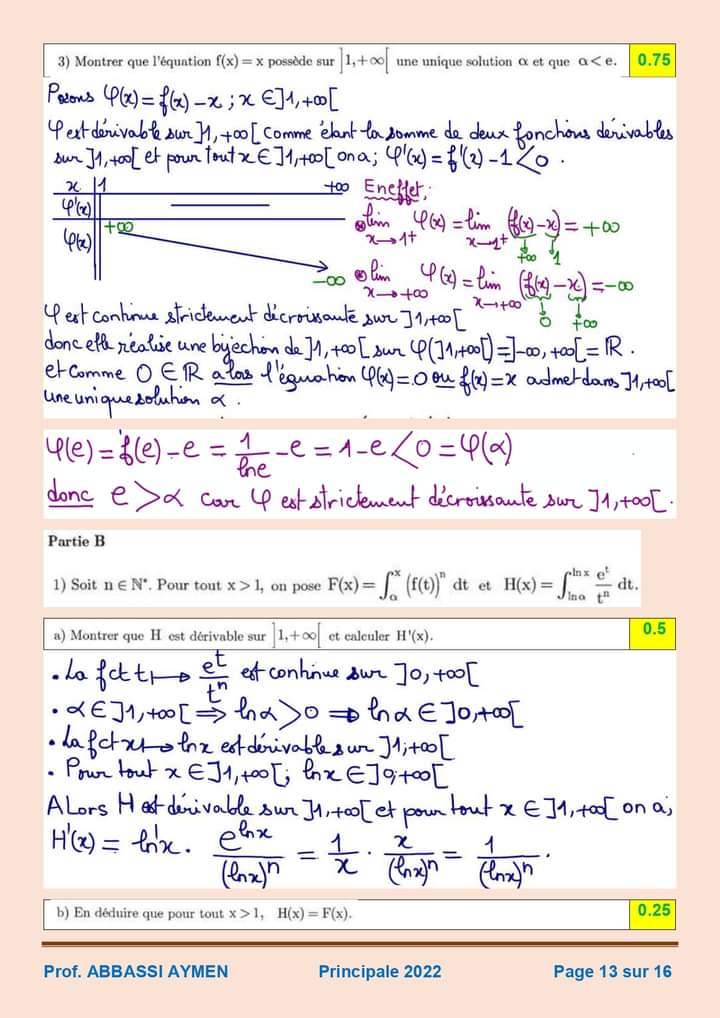 3) Montrer que l'équation f(x) = x possède sur ]1,+∞[ une unique solution α et que α < e. 0.75
Posons φ(x) = f(x) - x ; x ∈ ]1,+∞[
φ est dérivable sur ]1,+∞[ comme étant la somme de deux fonctions dérivables
sur ]1,+∞[ et pour tout x ∈ ]1,+∞[ on a ; φ'(x) = f'(x) - 1 < 0 .
x 1 +∞
φ'(x) —
φ(x) +∞ -∞
En effet ;
lim x→1+ φ(x) = lim x→1+ (f(x) - x) = +∞
+∞ 1
lim x→+∞ φ(x) = lim x→+∞ (f(x) - x) = -∞
0 +∞
φ est continue strictement décroissante sur ]1,+∞[
donc elle réalise une bijection de ]1,+∞[ sur φ(]1,+∞[) = ]-∞,+∞[ = ℝ .
et comme 0 ∈ ℝ alors l'équation φ(x) = 0 ou f(x) = x admet dans ]1,+∞[
une unique solution α .
φ(e) = f(e) - e = 1/ln e - e = 1 - e < 0 = φ(α)
donc e > α car φ est strictement décroissante sur ]1,+∞[ .
Partie B
1) Soit n ∈ ℕ*. Pour tout x > 1, on pose F(x) = ∫_α^x (f(t))^n dt et H(x) = ∫_{ln α}^{ln x} e^t/t^n dt.
a) Montrer que H est dérivable sur ]1,+∞[ et calculer H'(x). 0.5
• La fct t ↦ e^t/t^n est continue sur ]0,+∞[
• α ∈ ]1,+∞[ ⇒ ln α > 0 ⇒ ln α ∈ ]0,+∞[
• La fct x ↦ ln x est dérivable sur ]1,+∞[
• Pour tout x ∈ ]1,+∞[ ; ln x ∈ ]0,+∞[
Alors H est dérivable sur ]1,+∞[ et pour tout x ∈ ]1,+∞[ on a ;
H'(x) = ln'x . e^{ln x}/(ln x)^n = 1/x . x/(ln x)^n = 1/(ln x)^n .
b) En déduire que pour tout x > 1, H(x) = F(x). 0.25
Prof. ABBASSI AYMEN Principale 2022 Page 13 sur 16